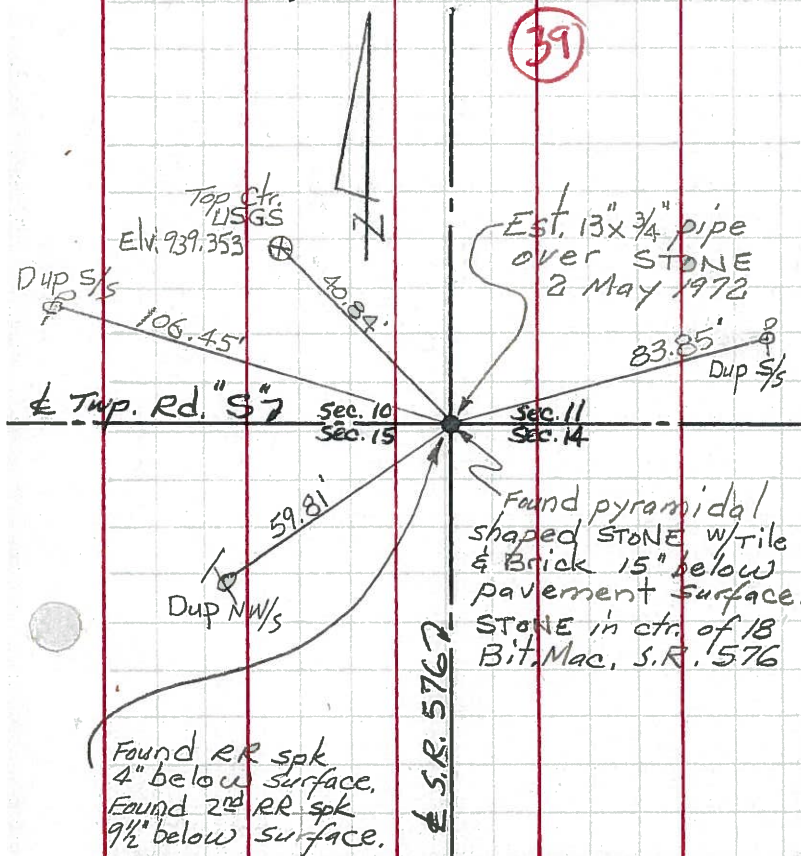 39
Top Ctr.
USGS
Elv. 939.353
Est. 13" x 3/4" pipe
over STONE
2 May 1972
Dup S/s
106.45'
40.84'
83.85'
Dup S/s
℄ Twp. Rd. "S"
Sec. 10
Sec. 11
Sec. 15
Sec. 14
59.81'
Dup NW/s
Found pyramidal
shaped STONE W/Tile
& Brick 15" below
pavement surface.
STONE in ctr. of 18
Bit. Mac. S.R. 576
℄ S.R. 576
Found RR spk
4" below surface.
Found 2nd RR spk
9½" below surface.
Z